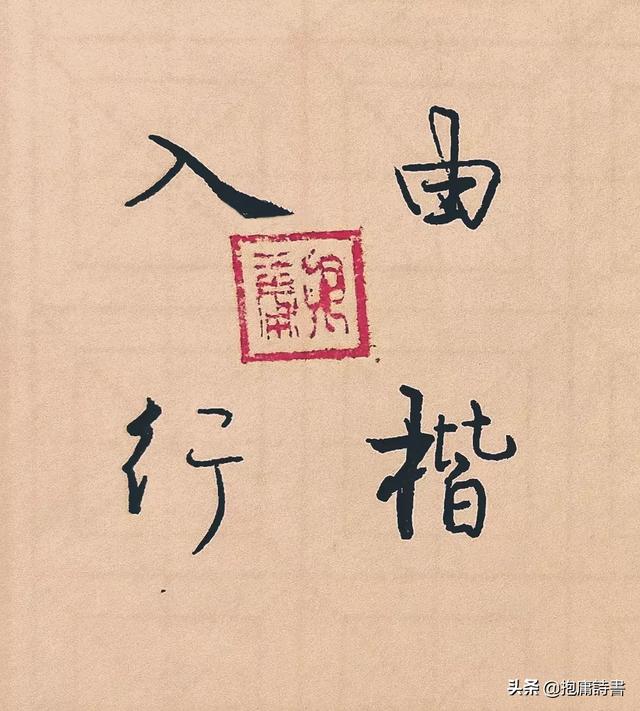 由楷
入行
头条 @抱庸詩書